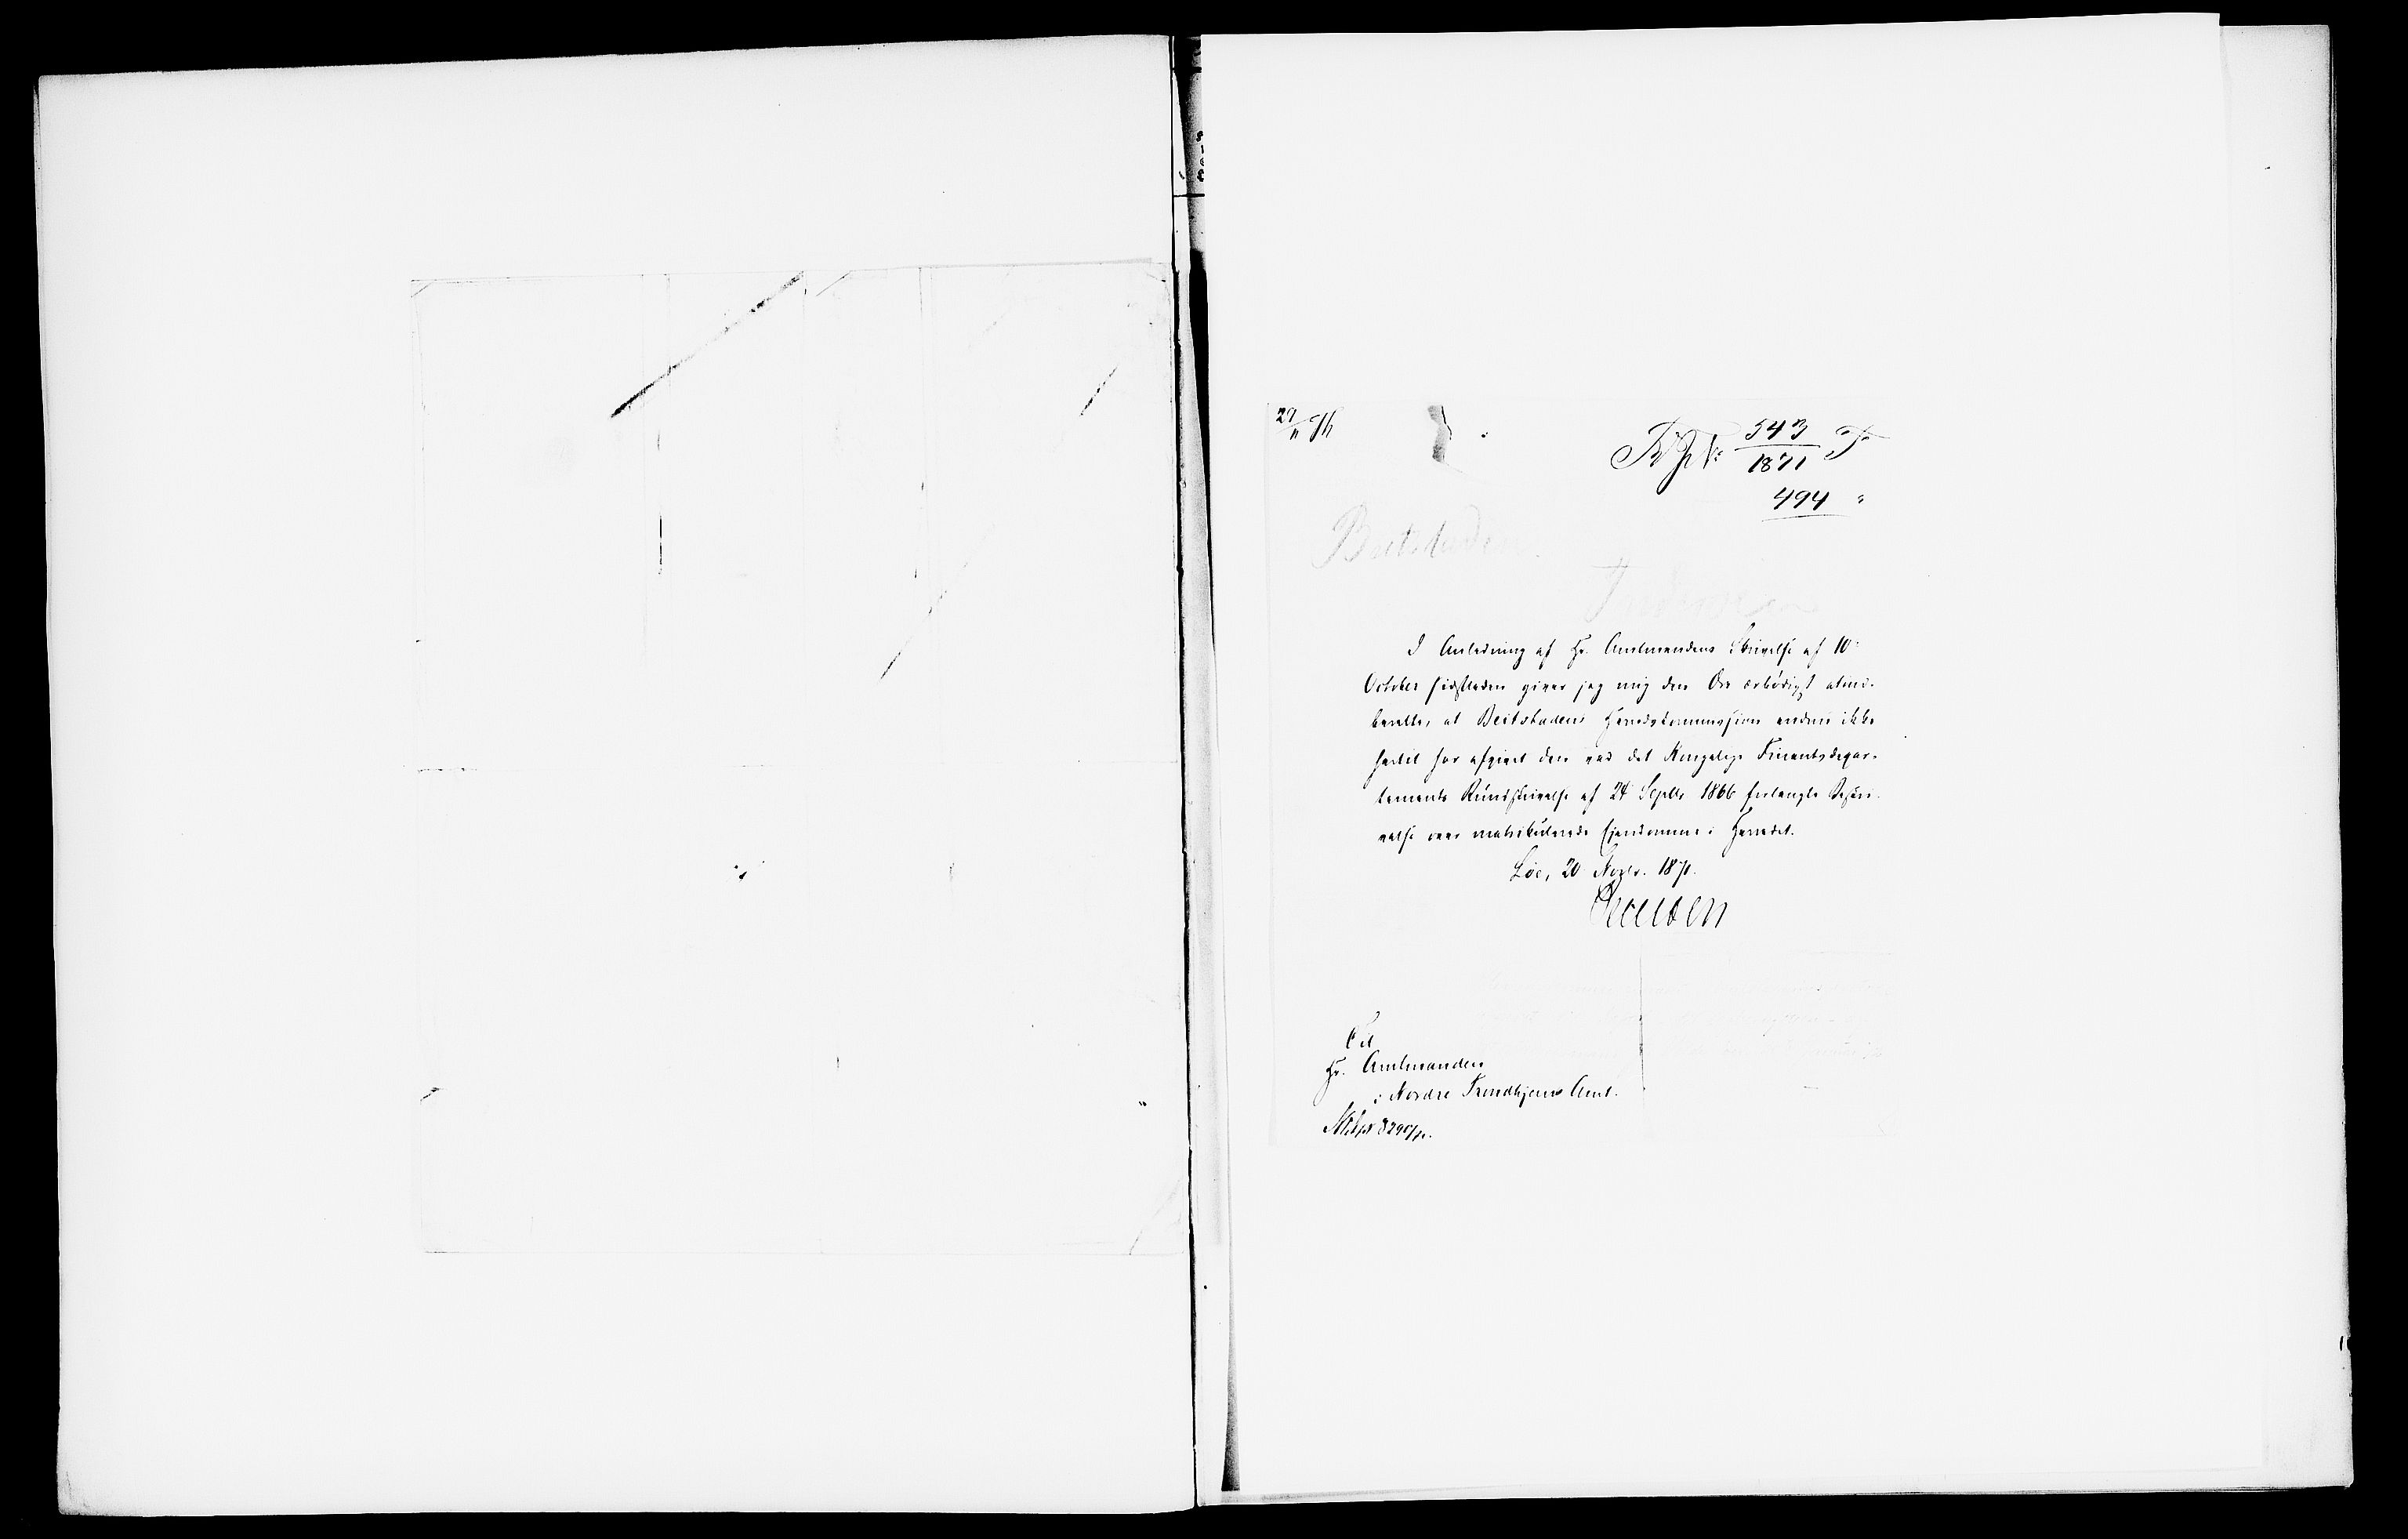 27/11 71
543
1871
494 "
Beitstaden
Inderøen
I Anledning af Hr. Amtmandens Skrivelse af 10.
October sidstleden giver jeg mig den Ære ærbødigst at ind-
berette, at Beitstadens Herredskommission endnu ikke
hertil har afgivet den ved det Kongelige Finantsdepar-
tements Rundskrivelse af 24 Septbr 1866 forlangte Beskri-
velse over matrikulerede Ejendomme i Herredet.
20 Novbr. 1871.
Til
Hr. Amtmanden
i Nordre Trondhjems Amt.